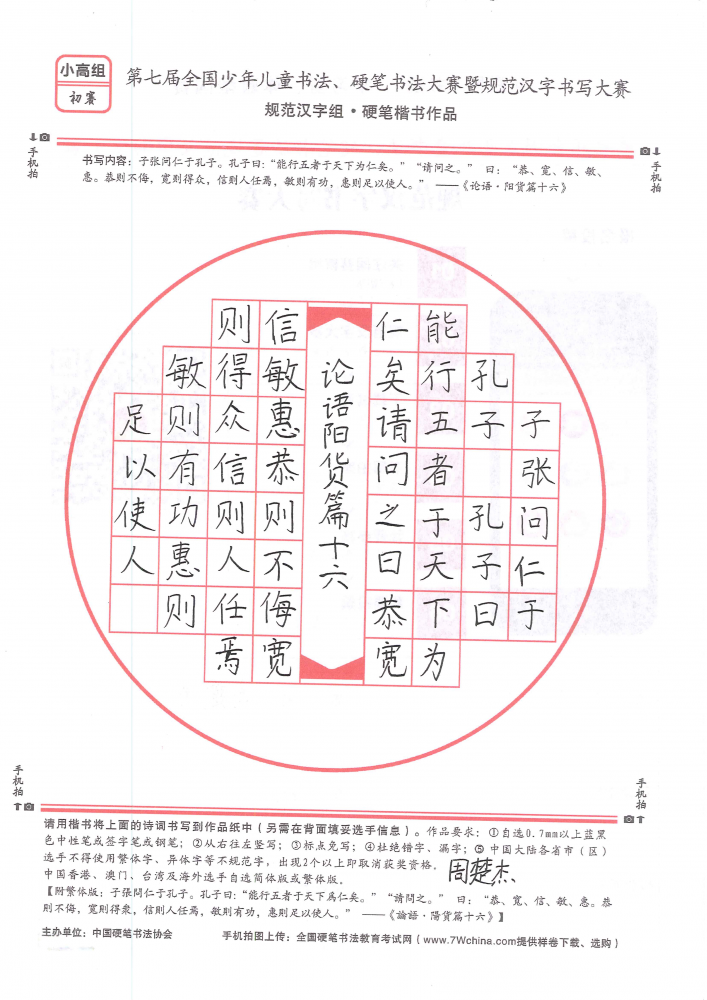 小高组
初赛
第七届全国少年儿童书法、硬笔书法大赛暨规范汉字书写大赛
规范汉字组·硬笔楷书作品
手机拍
手机拍
书写内容：子张问仁于孔子。孔子曰：“能行五者于天下为仁矣。”“请问之。”曰：“恭、宽、信、敏、
惠。恭则不侮，宽则得众，信则人任焉，敏则有功，惠则足以使人。”——《论语·阳货篇十六》
子张问仁于
孔子 孔子曰
能行五者于天下为
仁矣请问之曰恭宽
论语阳货篇十六
信敏惠恭则不侮宽
则得众信则人任焉
敏则有功惠则
足以使人
手机拍
手机拍
请用楷书将上面的诗词书写到作品纸中（另需在背面填妥选手信息）。作品要求：①自选0.7mm以上蓝黑
色中性笔或签字笔或钢笔；②从右往左竖写；③标点免写；④杜绝错字、漏字；⑤中国大陆各省市（区）
选手不得使用繁体字、异体字等不规范字，出现2个以上即取消获奖资格。
中国香港、澳门、台湾及海外选手自选简体版或繁体版。
周楚杰
【附繁体版：子張問仁于孔子。孔子曰：“能行五者于天下爲仁矣。”“請問之。”曰：“恭、寬、信、敏、惠。恭
則不侮，寬則得衆，信則人任焉，敏則有功，惠則足以使人。”——《論語·陽貨篇十六》】
主办单位：中国硬笔书法协会
手机拍图上传：全国硬笔书法教育考试网（www.7Wchina.com提供样卷下载、选购）